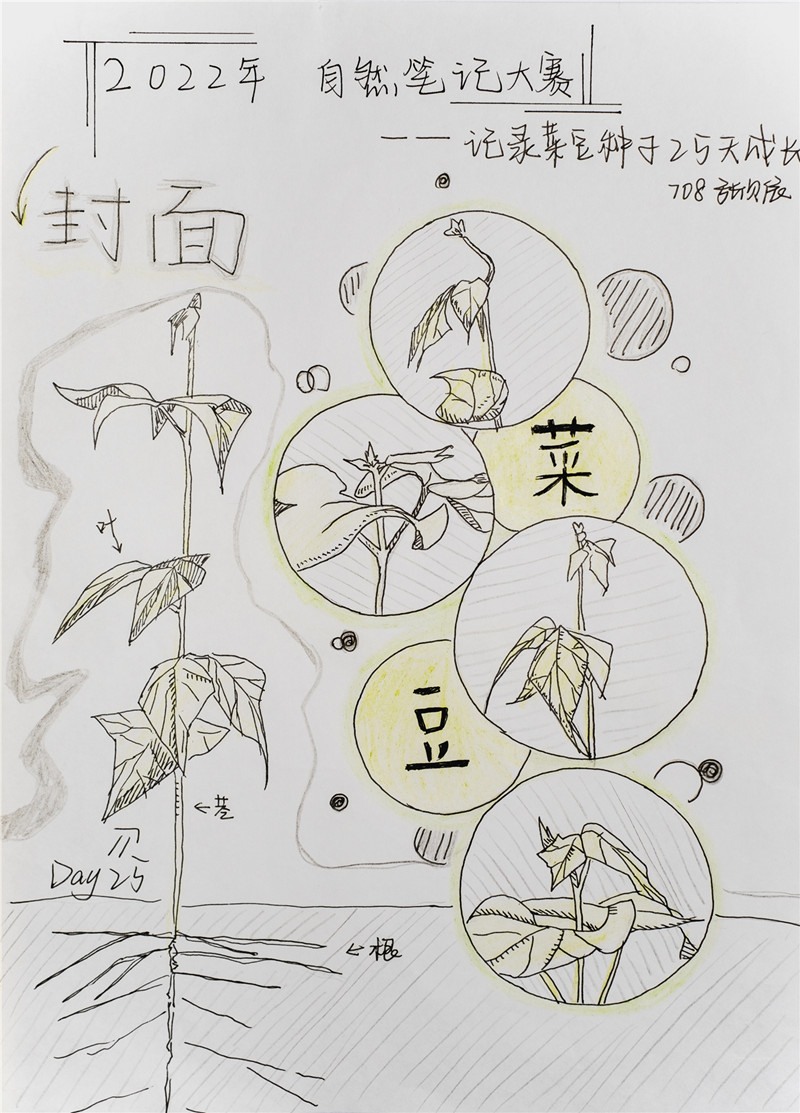 2022年 自然笔记大赛
——记录菜豆种子25天成长
708
封面
菜
叶
豆
←茎
Day 25
←根